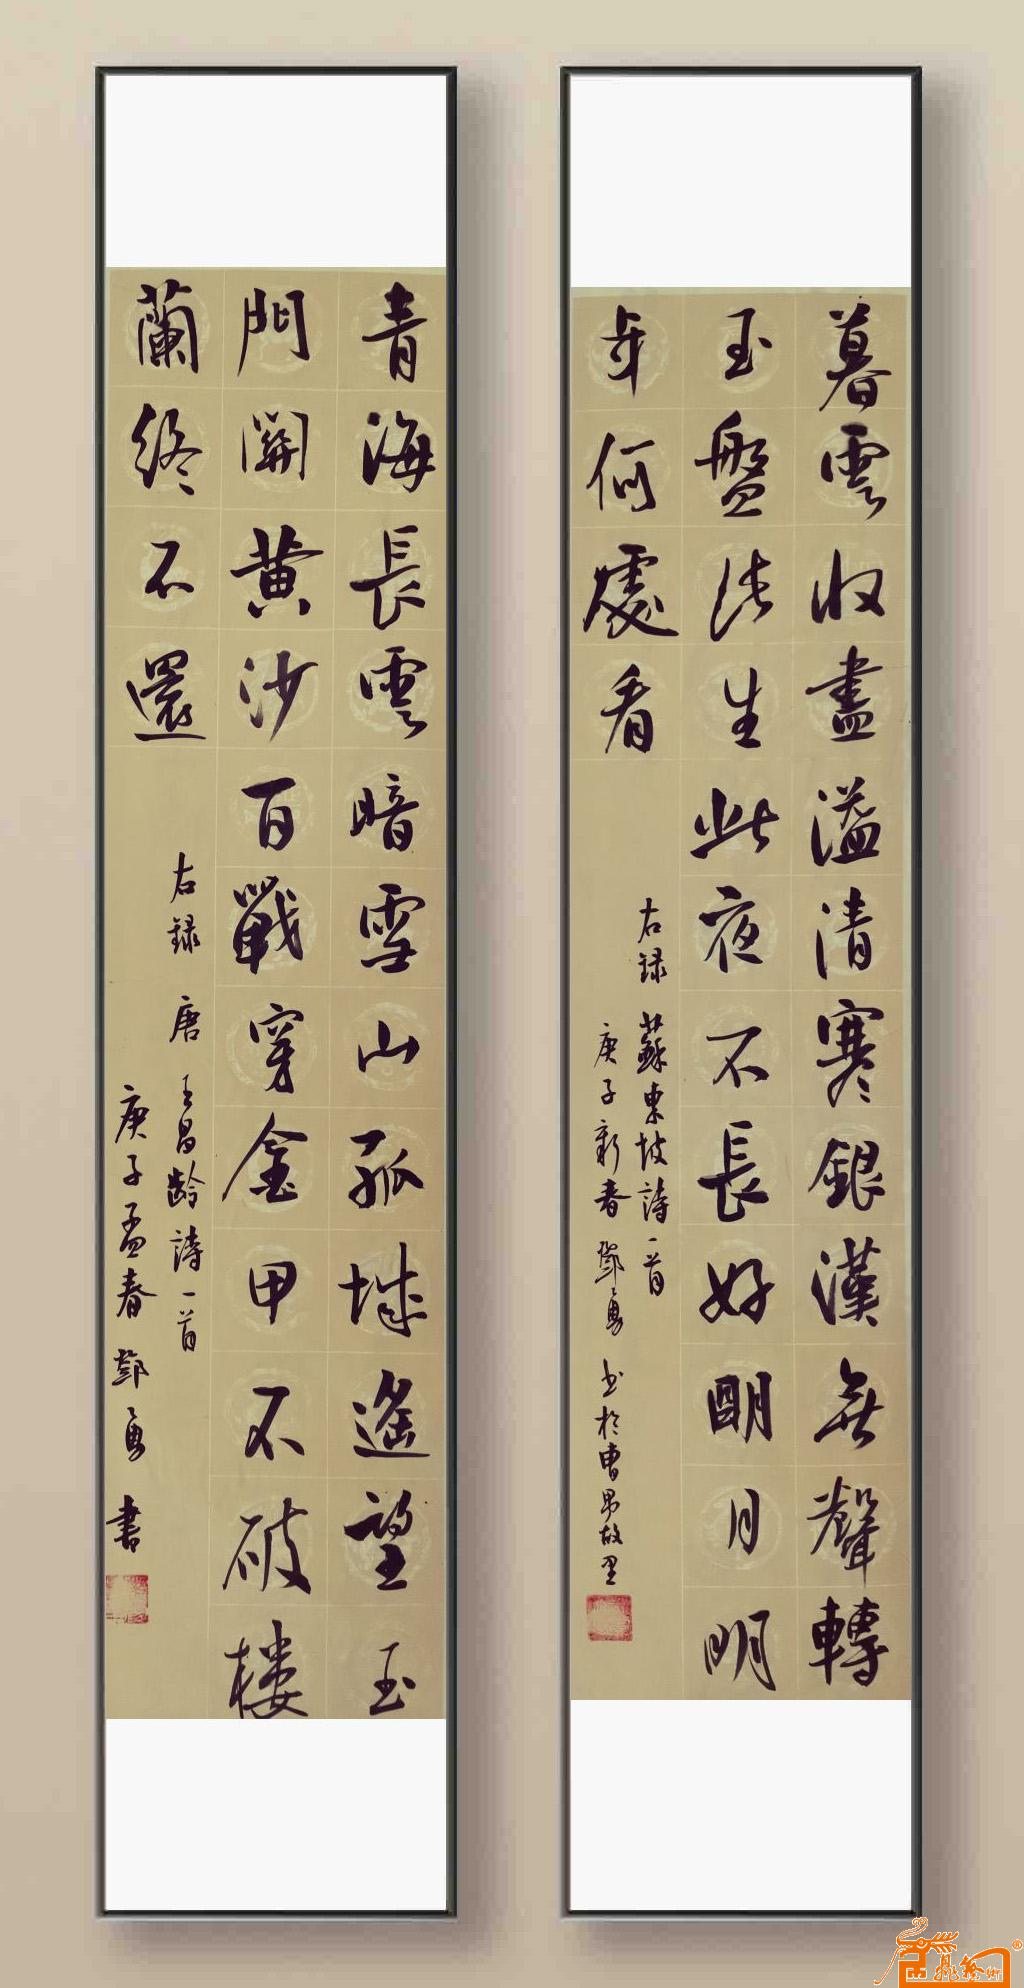 暮雲收盡溢清寒銀漢無聲轉
玉盤此生此夜不長好明月明
年何處看
右録 蘇東坡詩一首
庚子新春 鄧勇 书於曹故里
青海長雲暗雪山孤城遙望玉
門關黄沙百戰穿金甲不破楼
蘭終不還
右録 唐 王昌龄詩一首
庚子孟春 鄧勇 書